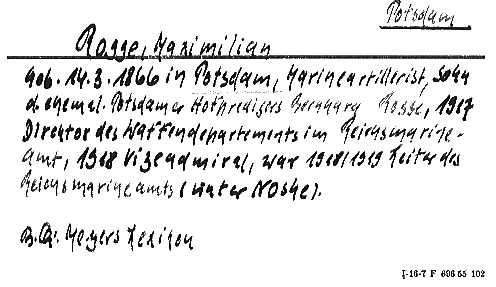 Potsdam
Rogge, Maximilian
geb. 14.3.1866 in Potsdam, Marineartillerist, Sohn
d. ehemal. Potsdamer Hofpredigers Bernhard Rogge, 1917
Direktor des Waffendepartements im Reichsmarine-
amt, 1918 Vizeadmiral, war 1918/1919 Leiter des
Reichsmarineamts (unter Noske).
Meyers Lexikon
I-16-7 F 696 55 102